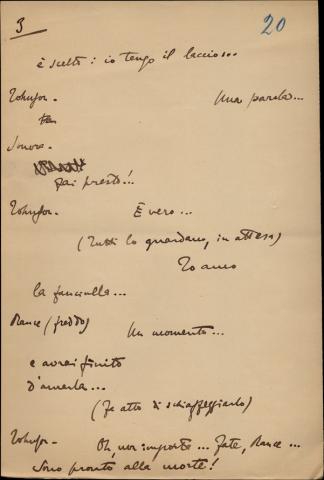 3
20
è scelto: io tengo il laccio...
Johnson.
Una parola...
Sonora.
Fai presto!..
Johnson.
È vero...
(Tutti lo guardano, in attesa)
Io amo
la fanciulla...
Rance (freddo)
Un momento...
e avrai finito
d'amarla...
(Fa atto di schiaffeggiarlo)
Johnson.
Oh, non importa... Fate, Rance...
Sono pronto alla morte!